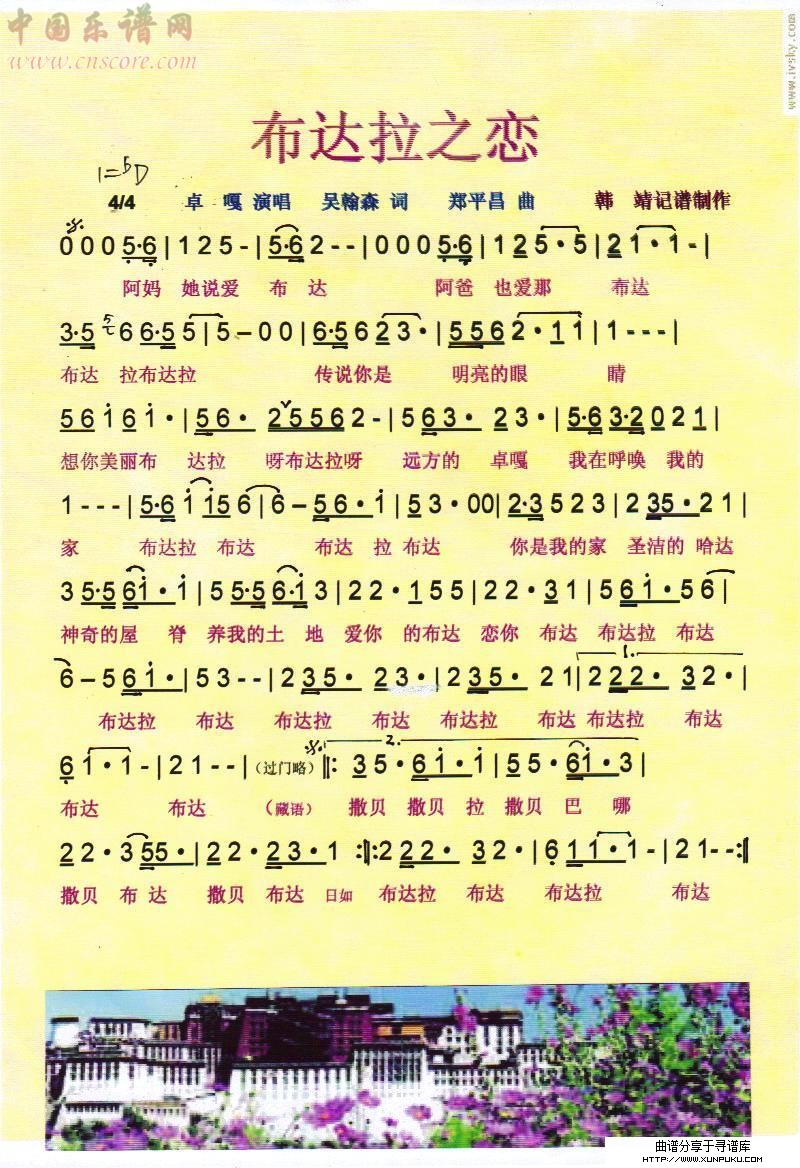 中国乐谱网
www.cnscore.com
www.ivsky.com
布达拉之恋
1=♭D
4/4 卓 嘎 演唱 吴翰森 词 郑平昌 曲 韩 靖记谱制作
0 0 0 5·6 | 1 2 5 - | 5·6 2 - - | 0 0 0 5·6 | 1 2 5 · 5 | 2 1 · 1 - |
阿妈 她说爱 布 达 阿爸 也爱那 布达
3·5 6 6·5 5 | 5 - 0 0 | 6·5 6 2 3 · | 5 5 6 2 · 1 1 | 1 - - - |
布达 拉布达拉 传说你是 明亮的眼 睛
5 6 1 6 1 · | 5 6 · 2 5 5 6 2 - | 5 6 3 · 2 3 · | 5·6 3·2 0 2 1 |
想你美丽布 达拉 呀布达拉呀 远方的 卓嘎 我在呼唤 我的
1 - - - | 5·6 1 1 5 6 | 6 - 5 6 · 1 | 5 3 · 0 0 | 2·3 5 2 3 | 2 3 5 · 2 1 |
家 布达拉 布达 布达 拉 布达 你是我的家 圣洁的 哈达
3 5·5 6 1 · 1 | 5 5·5 6·1 3 | 2 2 · 1 5 5 | 2 2 · 3 1 | 5 6 1 · 5 6 |
神奇的屋 脊 养我的土 地 爱你 的布达 恋你 布达 布达拉 布达
1.
6 - 5 6 1 · | 5 3 - - | 2 3 5 · 2 3 · | 2 3 5 · 2 1 | 2 2 2 · 3 2 · |
布达拉 布达 布达拉 布达 布达拉 布达 布达拉 布达
2.
6 1 · 1 - | 2 1 - - | (过门略) ‖: 3 5 · 6 1 · 1 | 5 5 · 6 1 · 3 |
布达 布达 (藏语) 撒贝 撒贝 拉 撒贝 巴 哪
2 2 · 3 5 5 · | 2 2 · 2 3 · 1 :‖: 2 2 2 · 3 2 · | 6 1 1 · 1 - | 2 1 - - :‖
撒贝 布 达 撒贝 布达 日如 布达拉 布达 布达拉 布达
曲谱分享于寻谱库
HTTP://WWW.XUNPUKU.COM